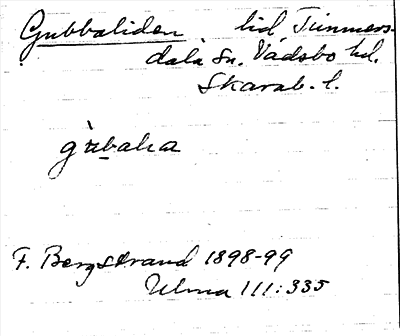 Gubbaliden, lid, Timmers-
dala sn. Vadsbo hd.
Skarab. l.
F. Bergstrand 1898-99
Ulma 111:335